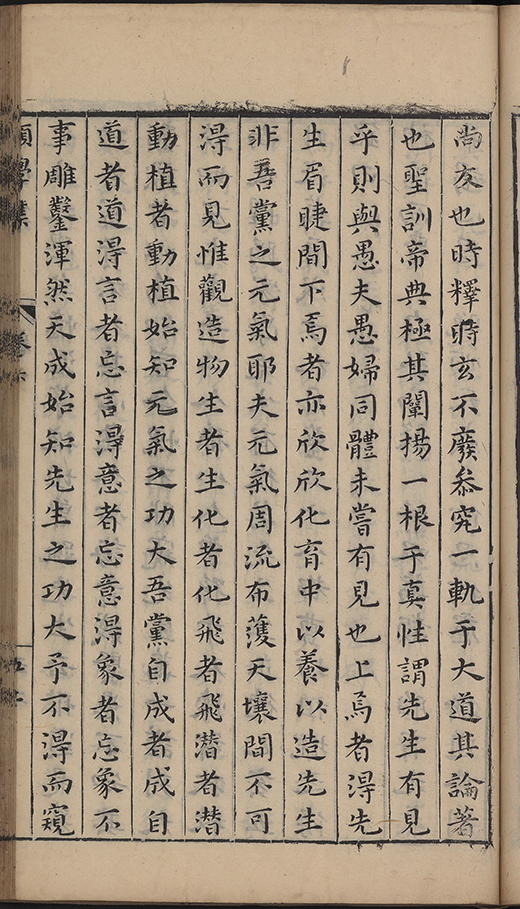 尚友也時釋時玄不廢叅究一軌于大道其論著
也聖訓帝典極其闡揚一根于真性謂先生有見
乎則與愚夫愚婦同體未嘗有見也上焉者得先
生眉睫間下焉者亦欣欣化育中以養以造先生
非吾黨之元氣耶夫元氣周流布濩天壤間不可
得而見惟觀造物生者生化者化飛者飛潛者潛
動植者動植始知元氣之功大吾黨自成者成自
道者道得言者忘言得意者忘意得象者忘象不
事雕鑿渾然天成始知先生之功大予不得而窺
願學集 卷六